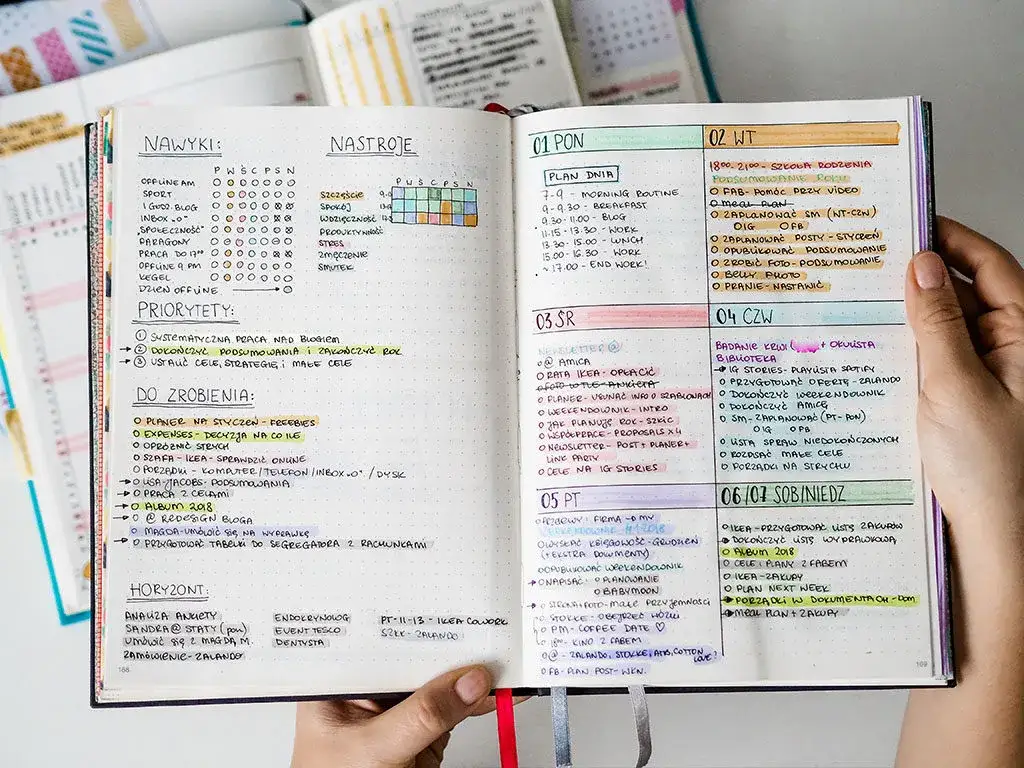 NAWYKI:
P W Ś C P S N
OFFLINE AM
SPORT
1 GODZ BLOG
INBOX „0"
„SPOŁECZNOŚĆ"
PARAGONY
PRACA DO 17⁰⁰
OFFLINE 9 PM
KEGEL
DZIEŃ OFFLINE
NASTROJE
P W Ś C P S N
SZCZĘŚCIE
SPOKÓJ
WDZIĘCZNOŚĆ
PRODUKTYWNOŚĆ
STRES
ZMĘCZENIE
SMUTEK
PRIORYTETY:
1 SYSTEMATYCZNA PRACA NAD BLOGIEM
2 DOKOŃCZYĆ PODSUMOWANIA I ZAKOŃCZYĆ ROK
3 USTALIĆ CELE, STRATEGIĘ I MAŁE CELE
DO ZROBIENIA:
PLANER NA STYCZEŃ - FREEBIES
EXPENSES - DECYZJA NA CO ILE
OPRÓŻNIĆ STRYCH
SZAFA - IKEA - SPRAWDZIĆ ONLINE
PORZĄDKI - KOMPUTER/TELEFON/INBOX „0" / DYSK
LISA JACOBS - PODSUMOWANIA
PRACA Z CELAMI
ALBUM 2018
@ REDESIGN BLOGA
MAGDA - UMÓWIĆ SIĘ NA WYPRAWKĘ
PRZYGOTOWAĆ TABELKI DO SEGREGATORA Z RACHUNKAMI
HORYZONT:
ANALIZA ANKIETY
SANDRA @ STATY (pow)
UMÓWIĆ SIĘ Z MAGDĄ M.
ZAMÓWIENIE - ZALANDO
ENDOKRYNOLOG
EVENT TESCO
DENTYSTA
PT - 11-13 - IKEA COWORK
SZKIC - ZALANDO
168
01 PON
PLAN DNIA
7-9 - MORNING ROUTINE
9-9.30 - BREAKFAST
9.30-11.00 - BLOG
11.15 - 13.30 - WORK
13.30 - 15.00 - LUNCH
15.00 - 16.30 - WORK
~ 17.00 - END WORK!
02 WT
18⁰⁰-21⁰⁰ - SZKOŁA RODZENIA
PODSUMOWANIE ROKU
FAB - POMÓC PRZY VIDEO
MEAL PLAN
ZAPLANOWAĆ SM (WT-CZW)
IG FB
ZAPLANOWAĆ POSTY - STYCZEŃ
OPUBLIKOWAĆ PODSUMOWANIE
ZROBIĆ FOTO - PODSUMOWANIE
BELLY PHOTO
PRANIE - NASTAWIĆ
03 ŚR
NEWSLETTER @
@ AMICA
RATA IKEA - OPŁACIĆ
FOTO W TLE - ANKIETA
PLANER - USUNĄĆ INFO O SZABLONACH
WEEKENDOWNIK - INTRO
JAK PLANUJĘ ROK - SZKIC
WSPÓŁPRACE - PROPOSALS x4
NEWSLETTER - POST + PLANER +
LINK PARTY
CELE NA IG STORIES
04 CZW
BADANIE KRWI + OKULISTA
BIBLIOTEKA
IG STORIES - PLAYLISTA SPOTIFY
PRZYGOTOWAĆ OFERTĘ - ZALANDO
DOKOŃCZYĆ WEEKENDOWNIK
DOKOŃCZYĆ AMICĘ
SM - ZAPLANOWAĆ (PT-PON)
IG FB
LISTA SPRAW NIEDOKOŃCZONYCH
ROZPISAĆ MAŁE CELE
PORZĄDKI NA STRYCHU
05 PT
FIRMA
WYSŁAĆ KSIĘGOWOŚĆ - GRUDZIEŃ
(+ EKSTRA DOKUMENTY)
OPUBLIKOWAĆ WEEKENDOWNIK
NAPISAĆ: PLANOWANIE
BABYMOON
STRONA + FOTO - MAŁE PRZYJEMNOŚCI
STOKKE - OBEJRZEĆ WÓZKI
PM - COFFEE DATE ♡
18⁰⁰ - KINO Z FABEM
@ - ZALANDO, STOKKE, COTTON
LOVE!
FB - PLAN POST - WKN.
06/07 SOB/NIEDZ
IKEA - PRZYGOTOWAĆ LISTĘ ZAKUPÓW
DOKOŃCZYĆ LISTĘ WYPRAWKOWĄ
ALBUM 2018
CELE I PLANY Z FABEM
IKEA - ZAKUPY
PLAN NEXT WEEK
PORZĄDKI W DOKUMENTACH - DOM
MEAL PLAN + ZAKUPY
169